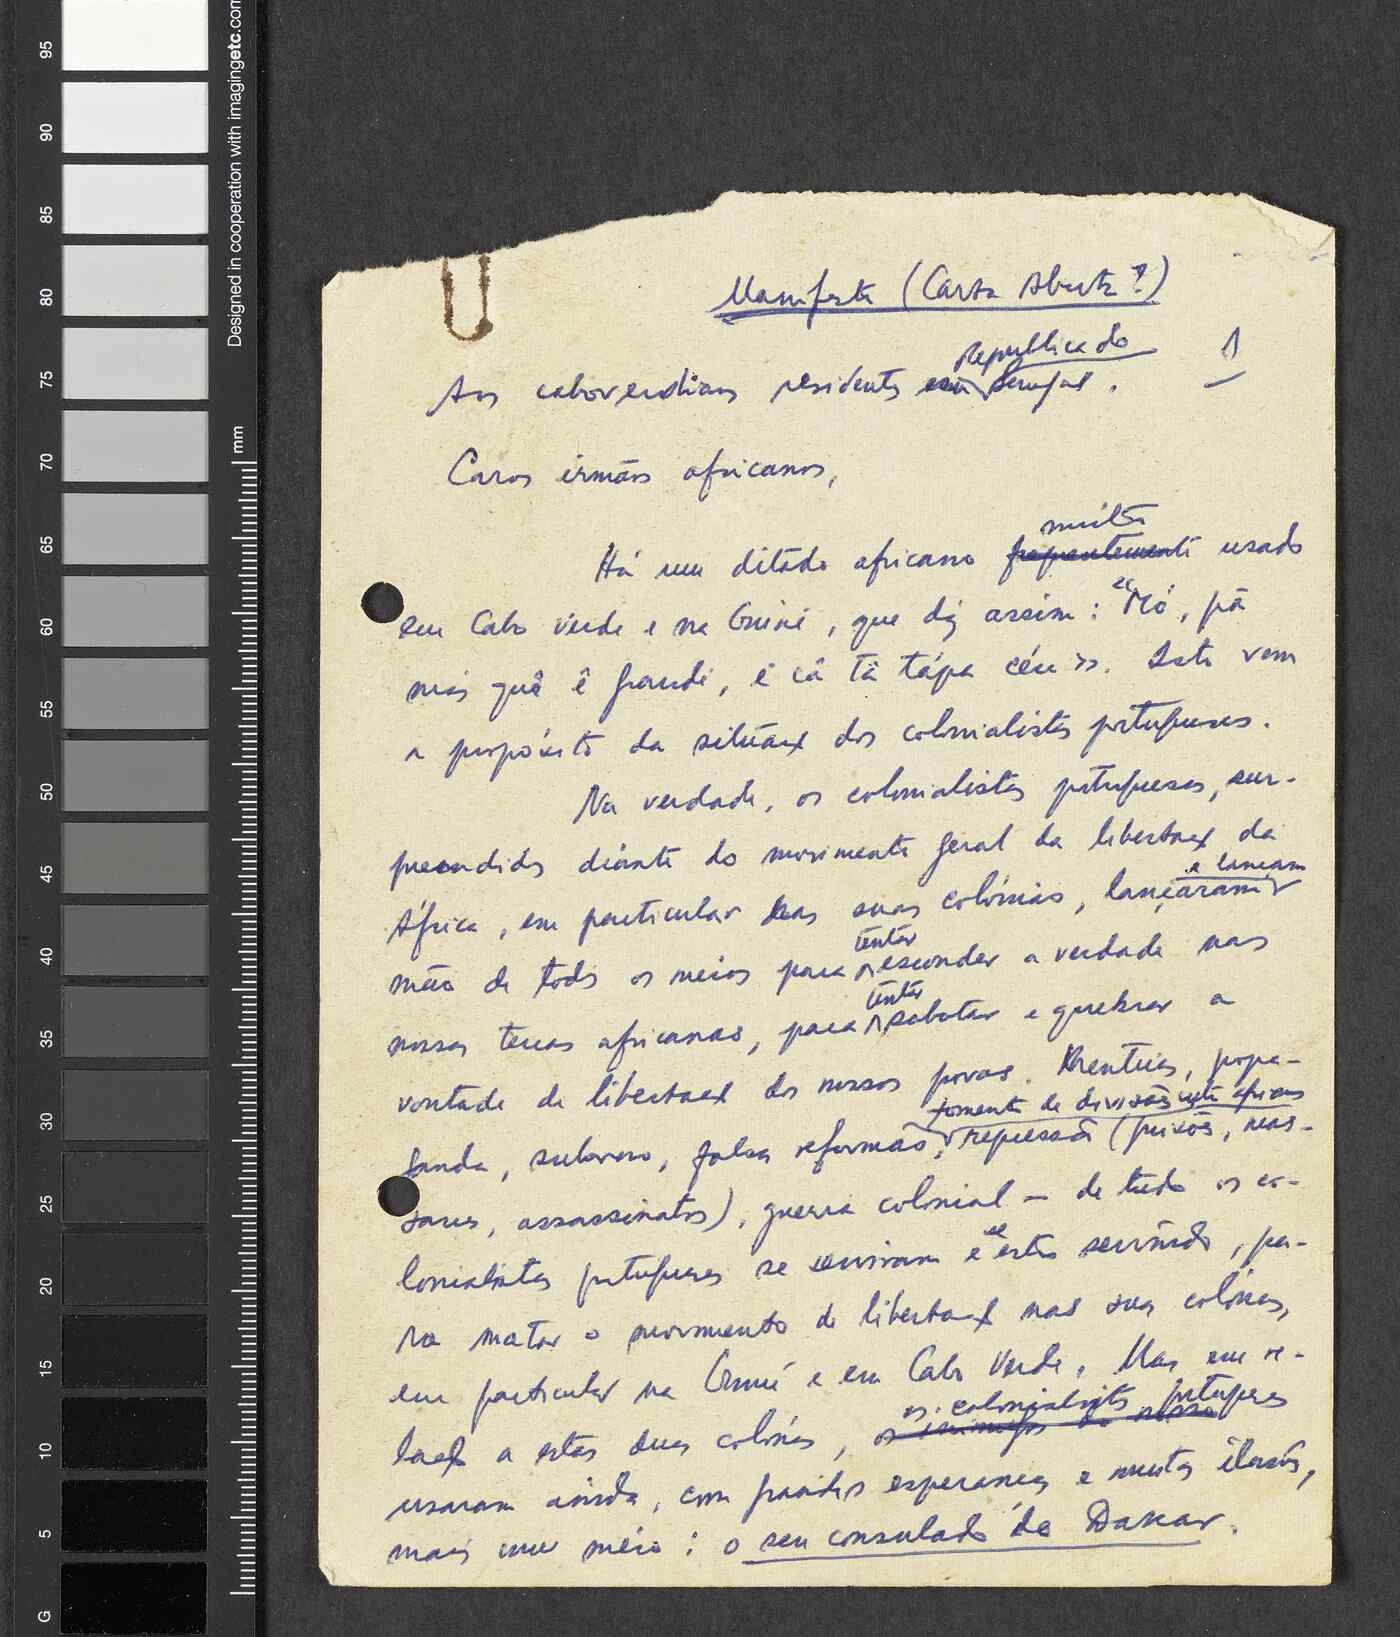 Manifesto (Carta Aberta?)
1
República do
Aos caboverdianos residentes em Senegal.
Caros irmãos africanos,
muito
Há um ditado africano frequentemente usado
em Cabo Verde e na Guiné, que diz assim: "Mó, pâ
más quê ê grandi, ê câ tâ tápa céu». Isto vem
a propósito da situação dos colonialistas portugueses.
Na verdade, os colonialistas portugueses, sur-
preendidos diante do movimento geral da libertação da
e lançam
África, em particular das suas colónias, lançaram
tentar
mão de todos os meios para esconder a verdade nas
tentar
nossas terras africanas, para sabotar e quebrar a
vontade de libertação dos nossos povos. Mentiras, propa-
fomento de divisões entre africanos
ganda, suborno, falsas reformas, repressão (prisões, mas-
sacres, assassinatos), guerra colonial — de tudo os co-
se
lonialistas portugueses se serviram e estão servindo, pa-
ra matar o movimento de libertação nas suas colónias,
em particular na Guiné e em Cabo Verde. Mas em re-
os colonialistas portugueses
lação a estas duas colónias, os inimigos do nosso
usaram ainda, com grandes esperanças e muitas ilusões,
mais um meio: o seu consulado de Dakar.
Designed in cooperation with imagingetc.com
mm
95
90
85
80
75
70
65
60
55
50
45
40
35
30
25
20
15
10
5
G